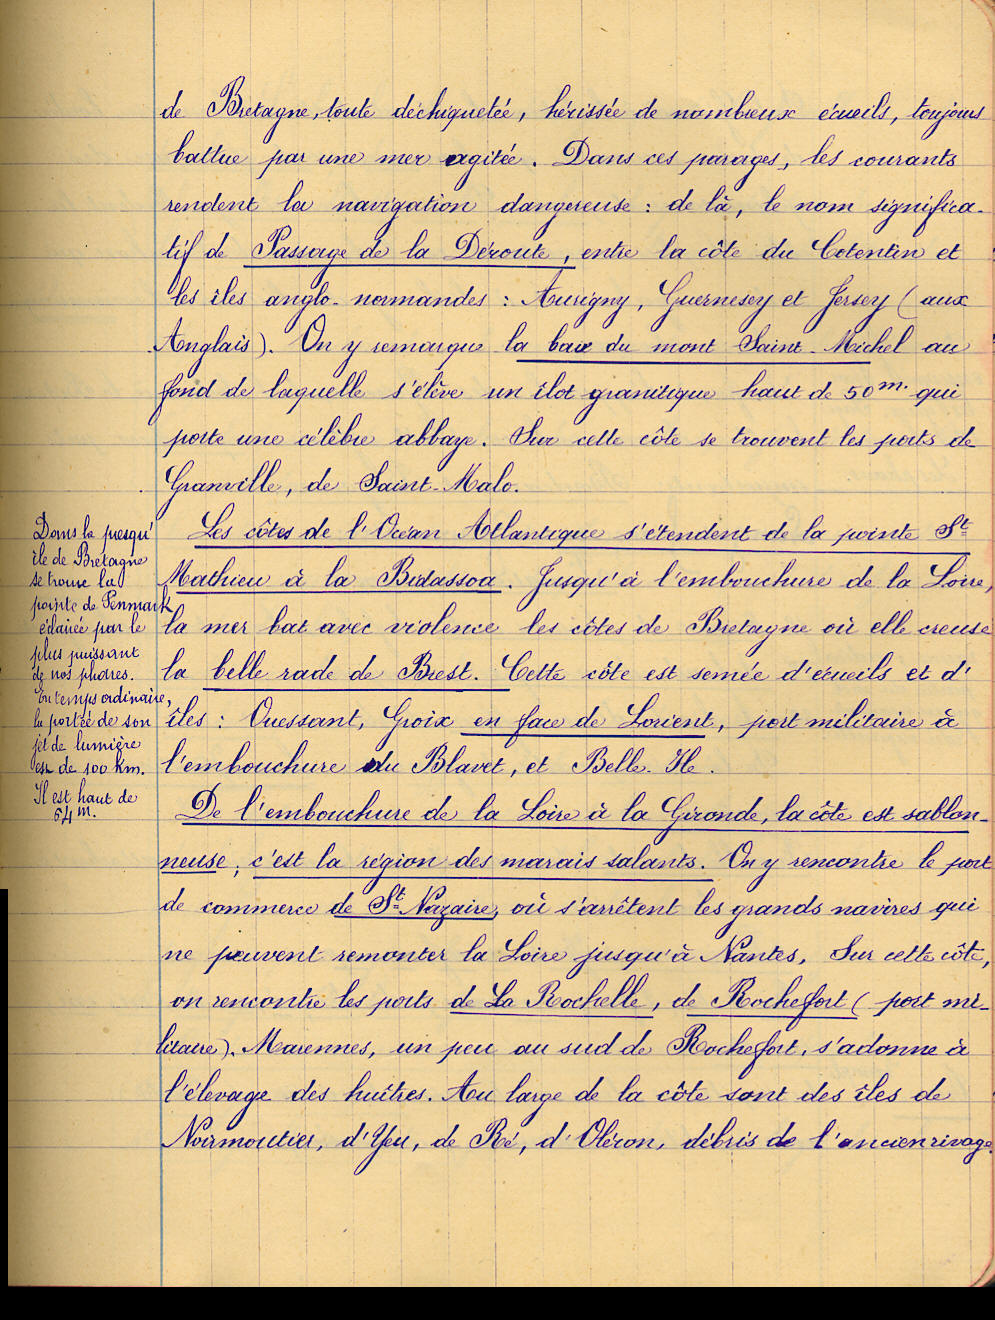 de Bretagne, toute déchiquetée, hérissée de nombreux écueils, toujours
battue par une mer agitée. Dans ces parages, les courants
rendent la navigation dangereuse : de là, le nom significa-
tif de Passage de la Déroute, entre la côte du Cotentin et
les îles anglo-normandes : Aurigny, Guernesey et Jersey (aux
Anglais). On y remarque la baie du mont Saint-Michel au
fond de laquelle s'élève un îlot granitique haut de 50 m. qui
porte une célèbre abbaye. Sur cette côte se trouvent les ports de
Granville, de Saint-Malo.
Les côtes de l'Océan Atlantique s'étendent de la pointe St
Mathieu à la Bidassoa. Jusqu'à l'embouchure de la Loire,
la mer bat avec violence les côtes de Bretagne où elle creuse
la belle rade de Brest. Cette côte est semée d'écueils et d'
îles : Ouessant, Groix en face de Lorient, port militaire à
l'embouchure du Blavet, et Belle-Ile.
De l'embouchure de la Loire à la Gironde, la côte est sablon-
neuse, c'est la région des marais salants. On y rencontre le port
de commerce de St Nazaire, où s'arrêtent les grands navires qui
ne peuvent remonter la Loire jusqu'à Nantes. Sur cette côte,
on rencontre les ports de La Rochelle, de Rochefort (port mi-
litaire). Marennes, un peu au sud de Rochefort, s'adonne à
l'élevage des huîtres. Au large de la côte sont des îles de
Noirmoutier, d'Yeu, de Ré, d'Oléron, débris de l'ancien rivage.
Dans la presqu'
île de Bretagne
se trouve la
pointe de Penmark
éclairée par le
plus puissant
de nos phares.
En temps ordinaire,
la portée de son
jet de lumière
est de 100 Km.
Il est haut de
64 m.